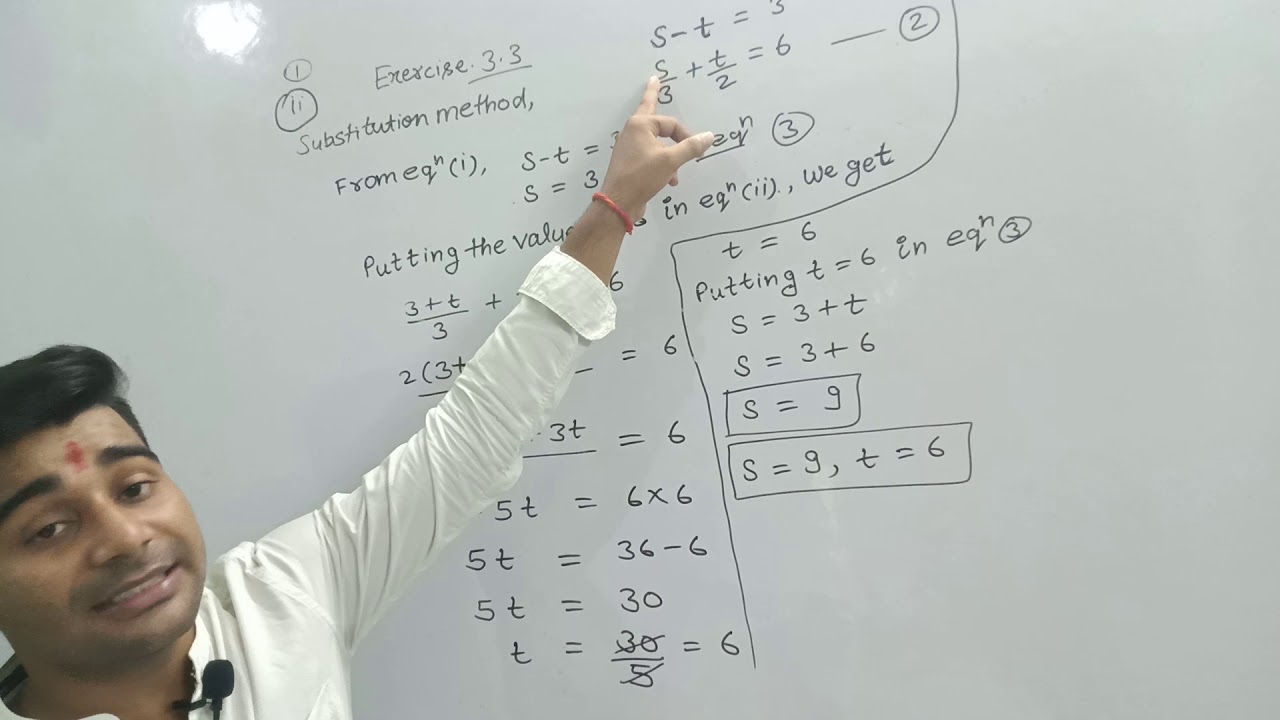 ① Exercise. 3.3
ⓘⓘ
Substitution method,
s - t = 3
s/3 + t/2 = 6 — ②
From eqⁿ(i), s - t = 3
s = 3 eqⁿ ③
Putting the value in eqⁿ(ii)., we get
(3+t)/3 + 6
2(3+ = 6
3t = 6
5t = 6×6
5t = 36-6
5t = 30
t = 30/5 = 6
t = 6
Putting t = 6 in eqⁿ ③
s = 3 + t
s = 3 + 6
s = 9
s = 9, t = 6